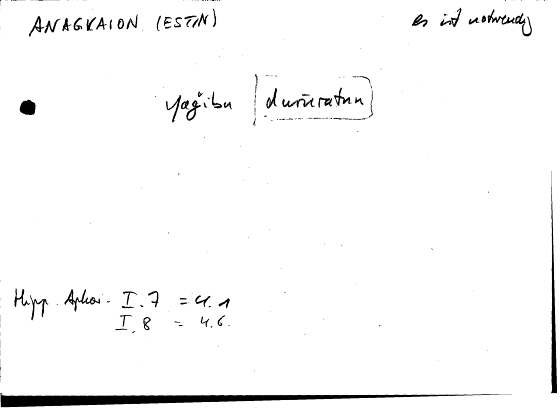 ANAGKAION (ESTIN) es ist notwendig
yaǧibu ḍarūratun
Hipp. Aphor. I.7 = 4.1
I.8 = 4.6.